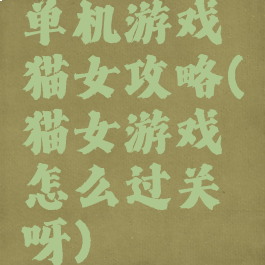 单机游戏
猫女攻略(
猫女游戏
怎么过关
呀)